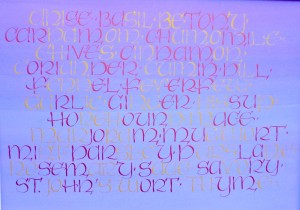 ANISE· BASIL· BETONY·
CARDAMOM· CHAMOMILE·
CHIVES· CINNAMON·
CORIANDER· CUMIN· DILL·
FENNEL· FEVERFEW·
GARLIC· GINGER· HYSSOP·
HOREHOUND·
MARJORAM·
MINT· PARSLEY·
ROSEMARY· SAGE· SAVORY·
ST. JOHN'S WORT· THYME·